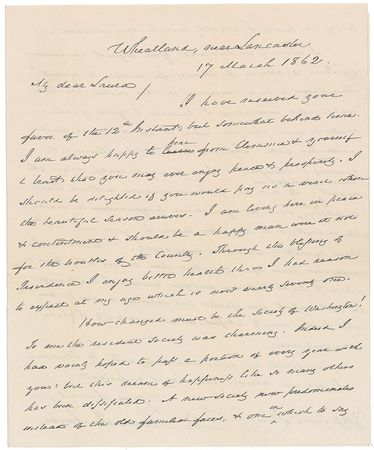 Wheatland, near Lancaster
17 March 1862.
My dear Laura /
I have received your
favor of the 12th Instant, but somewhat behind time.
I am always happy to hear from Clementina & yourself
& trust that you may ever enjoy peace & prosperity. I
should be delighted if you would pay us a visit when
the beautiful season arrives. I am living here in peace
& contentment & should be a happy man were it not
for the troubles of the Country. Through the blessing of
Providence I enjoy better health than I had reason
to expect at my age which is now nearly seventy one.
How changed must be the society of Washington!
To me the resident society was charming. Indeed I
had vainly hoped to pass a portion of every year with
you: but this dream of happiness like so many others
has been dissipated. A new society now predominates
instead of the old familiar faces, & one in which to say